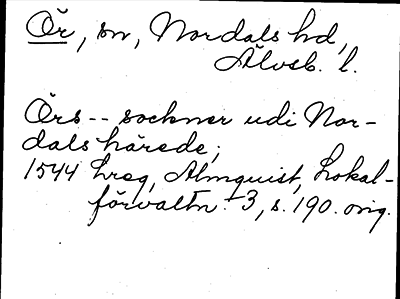 Ör, sn, Nordals hd,
Älvsb. l.
Örs -- sockner udi Nor-
dals härede;
1544 Lreg, Almquist, Lokal-
förvaltn. 3, s. 190. orig.